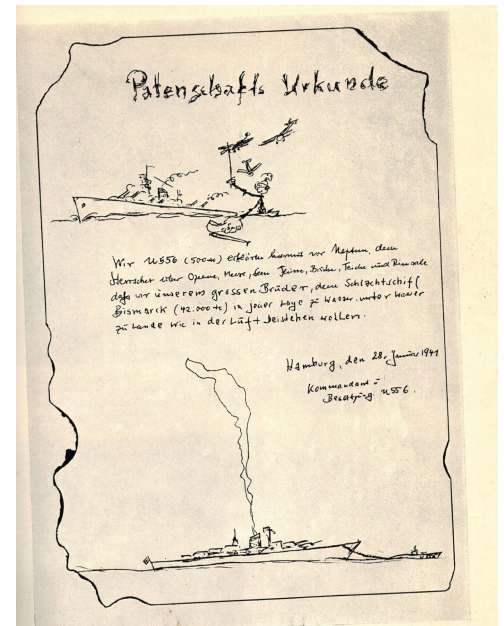 Patenschafts Urkunde
Wir U556 (500to) erklären hiermit vor Neptun, dem
Herrscher über Ozeane, Meere, Seen, Teiche und
daß wir unserem grossen Bruder, dem Schlachtschiff
Bismarck (42.000 to) in jeder Lage zu Wasser, unter Wasser
zu Lande wie in der Luft beistehen wollen.
Hamburg, den 28. Januar 1941
Kommandant u
Besatzung U556.